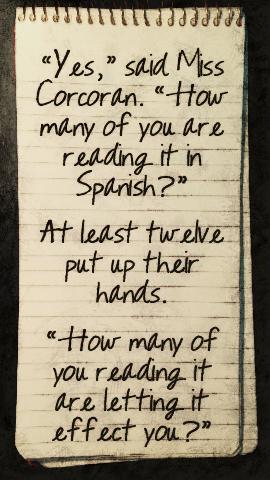 “Yes,” said Miss
Corcoran. “How
many of you are
reading it in
Spanish?”
At least twelve
put up their
hands.
“How many of
you reading it
are letting it
effect you?”